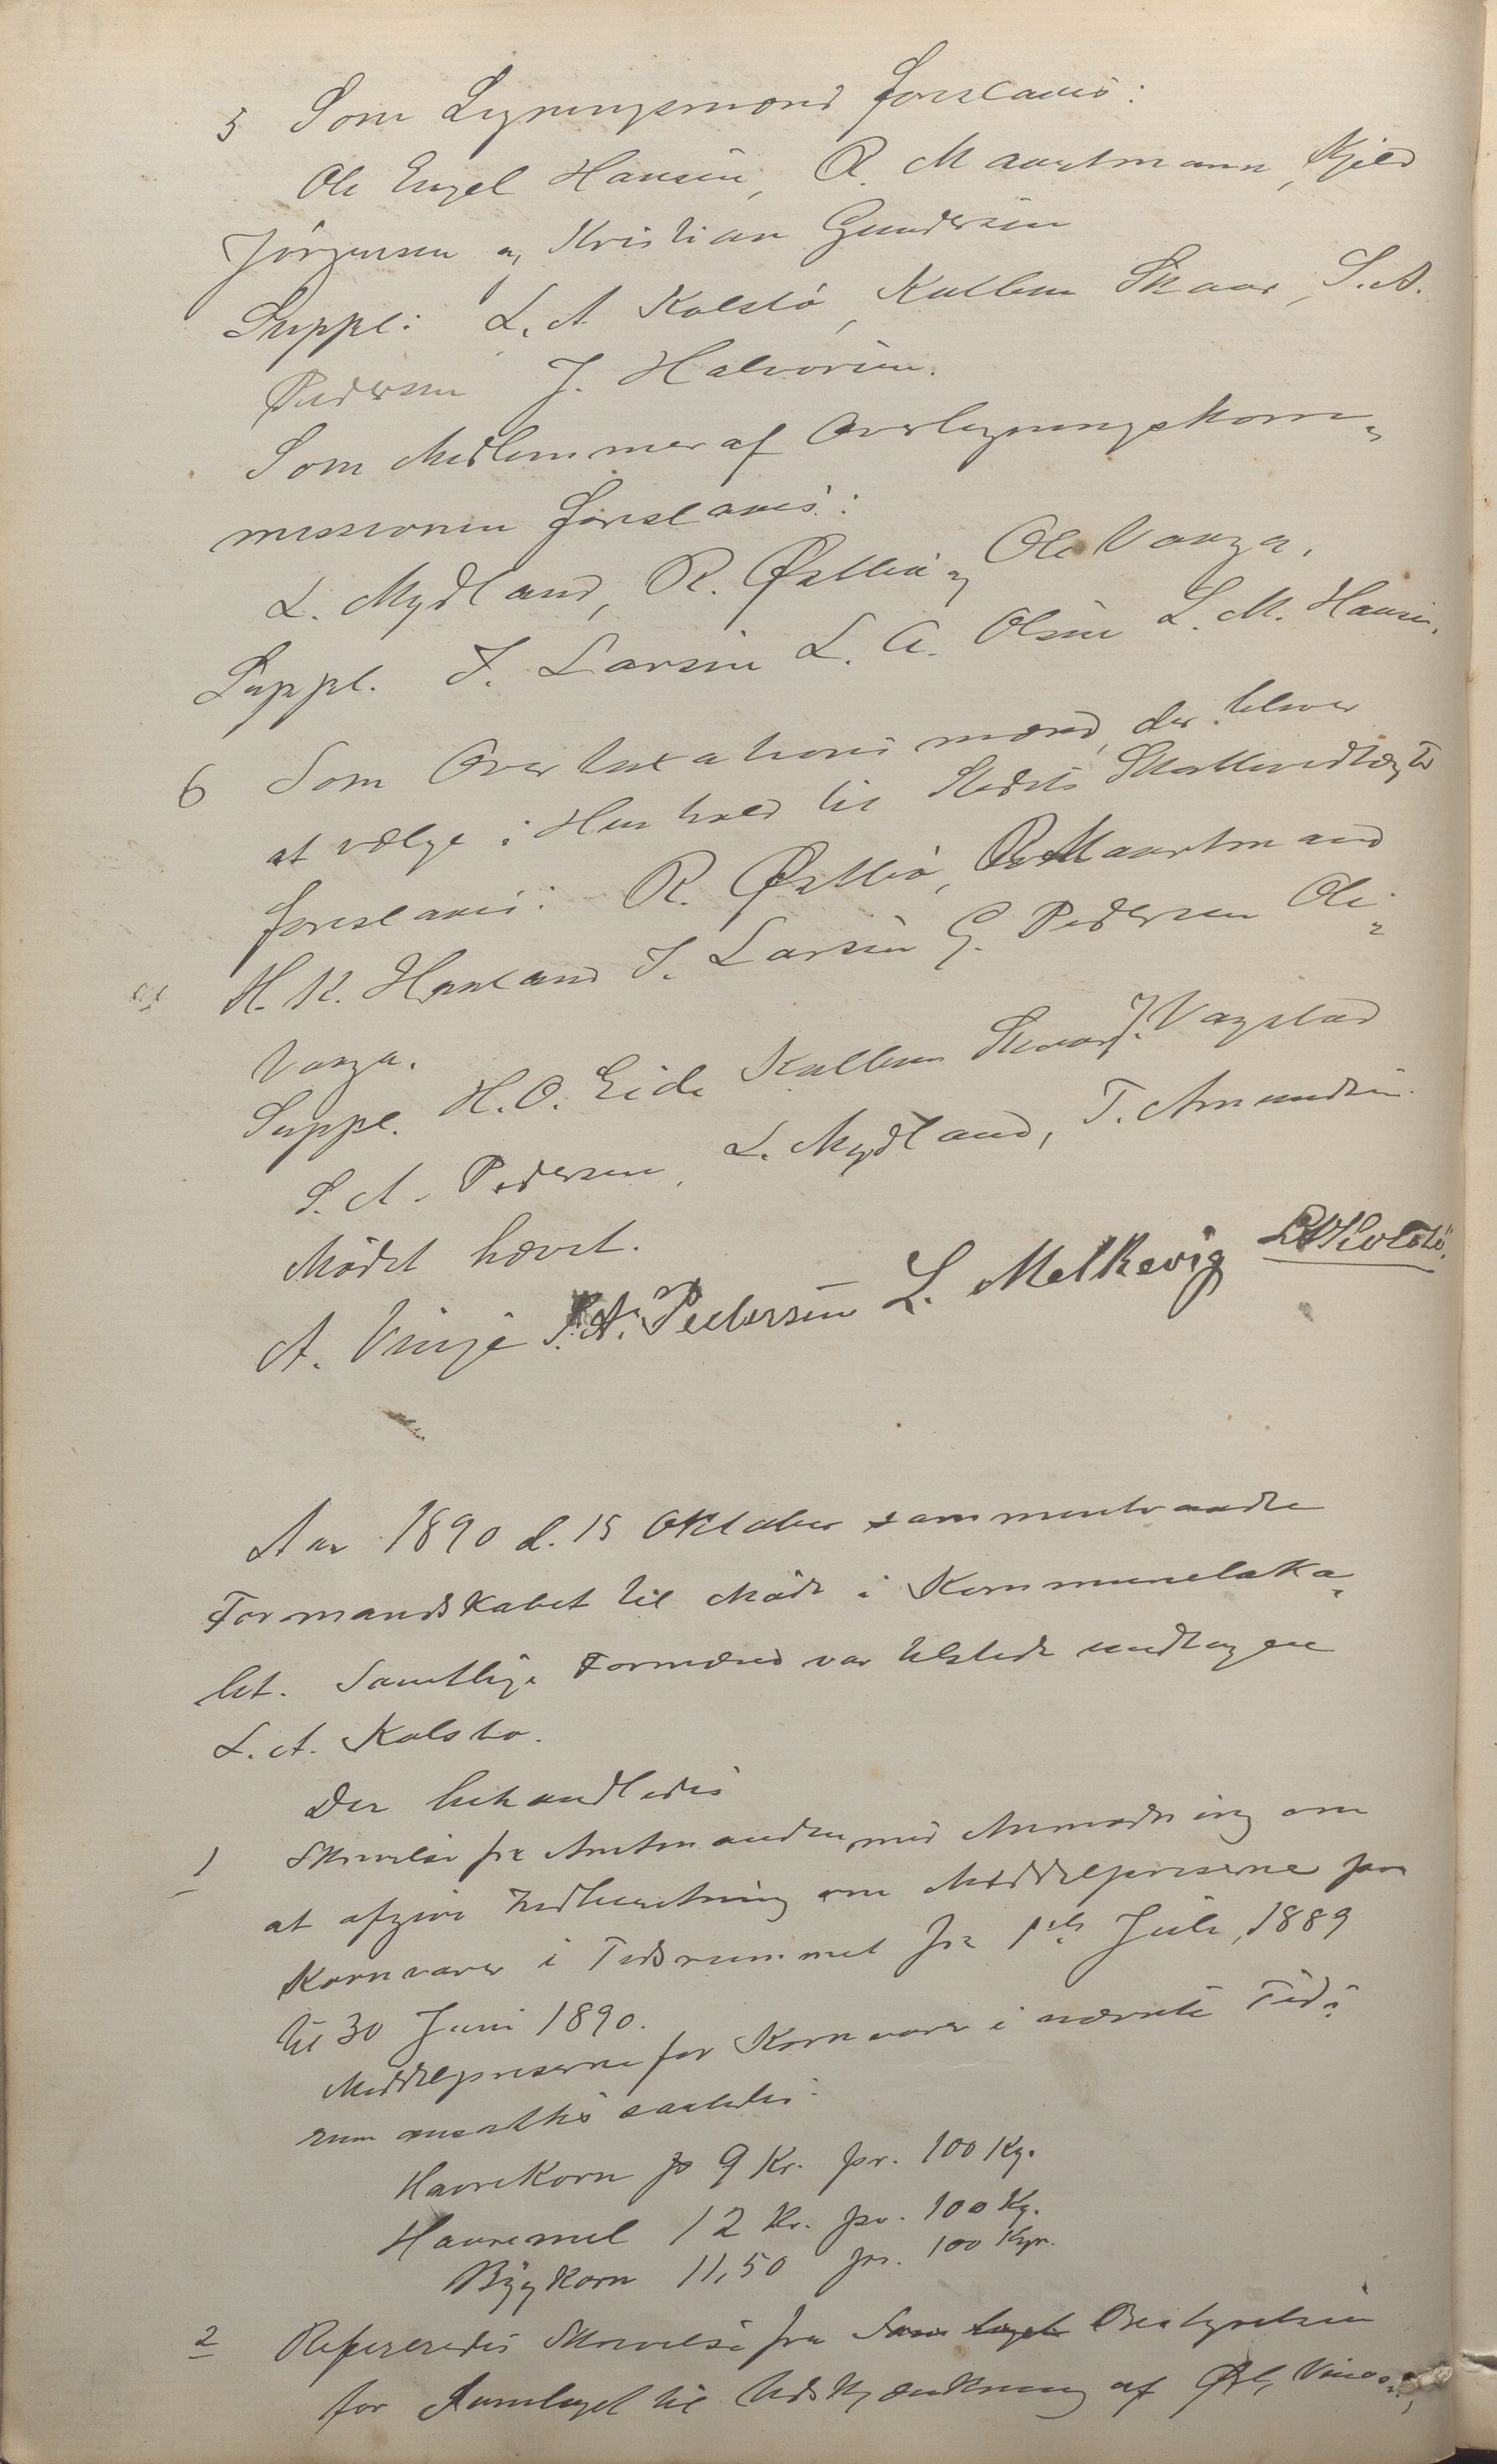 5 Som Ligningsmænd foreslaaes:
Ole Engel Hansen, R. Maartmann, Kjeld
Jörgensen og Kristian Gundersen
Suppl: L. A. Kolstö, Kullem Skaar, S. A.
Pedersen J. Halvorsen.
Som Medlemmer af Overligningskom-
missionen foreslaaes:
L. Mydland, R. Østbö og Ole Vaaga.
Suppl. J. Larsen L. A. Olsen L. M. Hansen.
6 Som Overtaxationsmænd, der bliver
at vælge i Henhold til Stedets Skattevedtægter
foreslaaes: R. Østbö, R Maartmand
H. K. Hauland J. Larsen G. Pedersen Ole
Vaaga.
Suppl. H. O. Eide Kullem Skaar J. Vagstad
S. A. Pedersen, L. Mydland, T. Amundsen.
Mödet hævet.
A. Vinje S. A. Pedersen L. Melkevig LAKolstö.
Aar 1890 d. 15 Oktober sammentraadte
Formandskabet til Möde i Kommunelaka-
let. Samtlige Formænd var tilstede undtagen
L. A. Kolsto.
Der behandledes
1 Skrivelse fra Amtmanden med Anmodning om
at afgive Indberetning om Middelpriserne paa
Kornvarer i Tidsrummet fra 1ste Juli 1889
til 30 Juni 1890.
Middelpriserne for Kornvarer i nævnte Tids-
rum ansattes saaledes:
Havrekorn 9 Kr. pr. 100 Kg.
Havremel 12 Kr. pr. 100 Kg.
Bygkorn 11,50 pr. 100 Kgr.
2 Refereredes Skrivelse fra Samlaget Bestyrelsen
for Samlaget til Udskjænkning af Øl, Vin